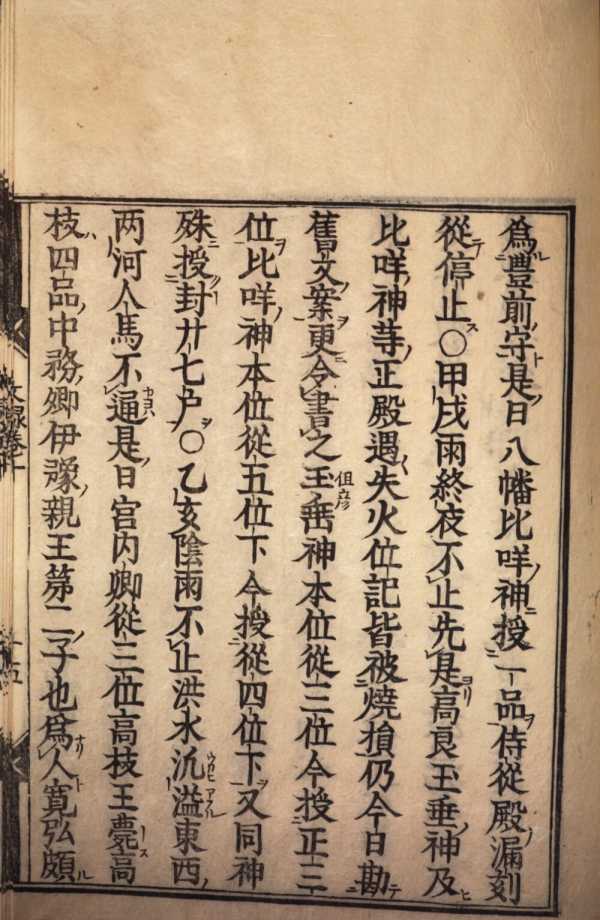 爲豊前守是日八幡比咩神授一品侍從殿漏刻
從停止〇甲戌雨終夜不止先是高良玉垂神及
比咩神等正殿遇失火位記皆被燒損仍今日勘
舊文案更令書之玉垂神本位從三位今授正三
位比咩神本位從五位下今授從四位下又同神
殊授封廿七戸〇乙亥陰雨不止洪水汎溢東西
兩河人馬不通是日宮内卿從三位高枝王薨高
枝四品中務卿伊豫親王第二子也爲人寛弘頗